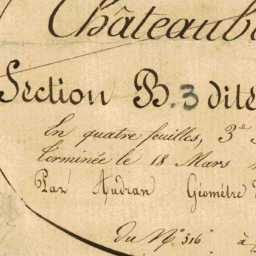 Châteaub
Section B.3 dite
En quatre feuilles, 3e
Terminée le 18 Mars
Par Audran Géomètre
du N° 316 à